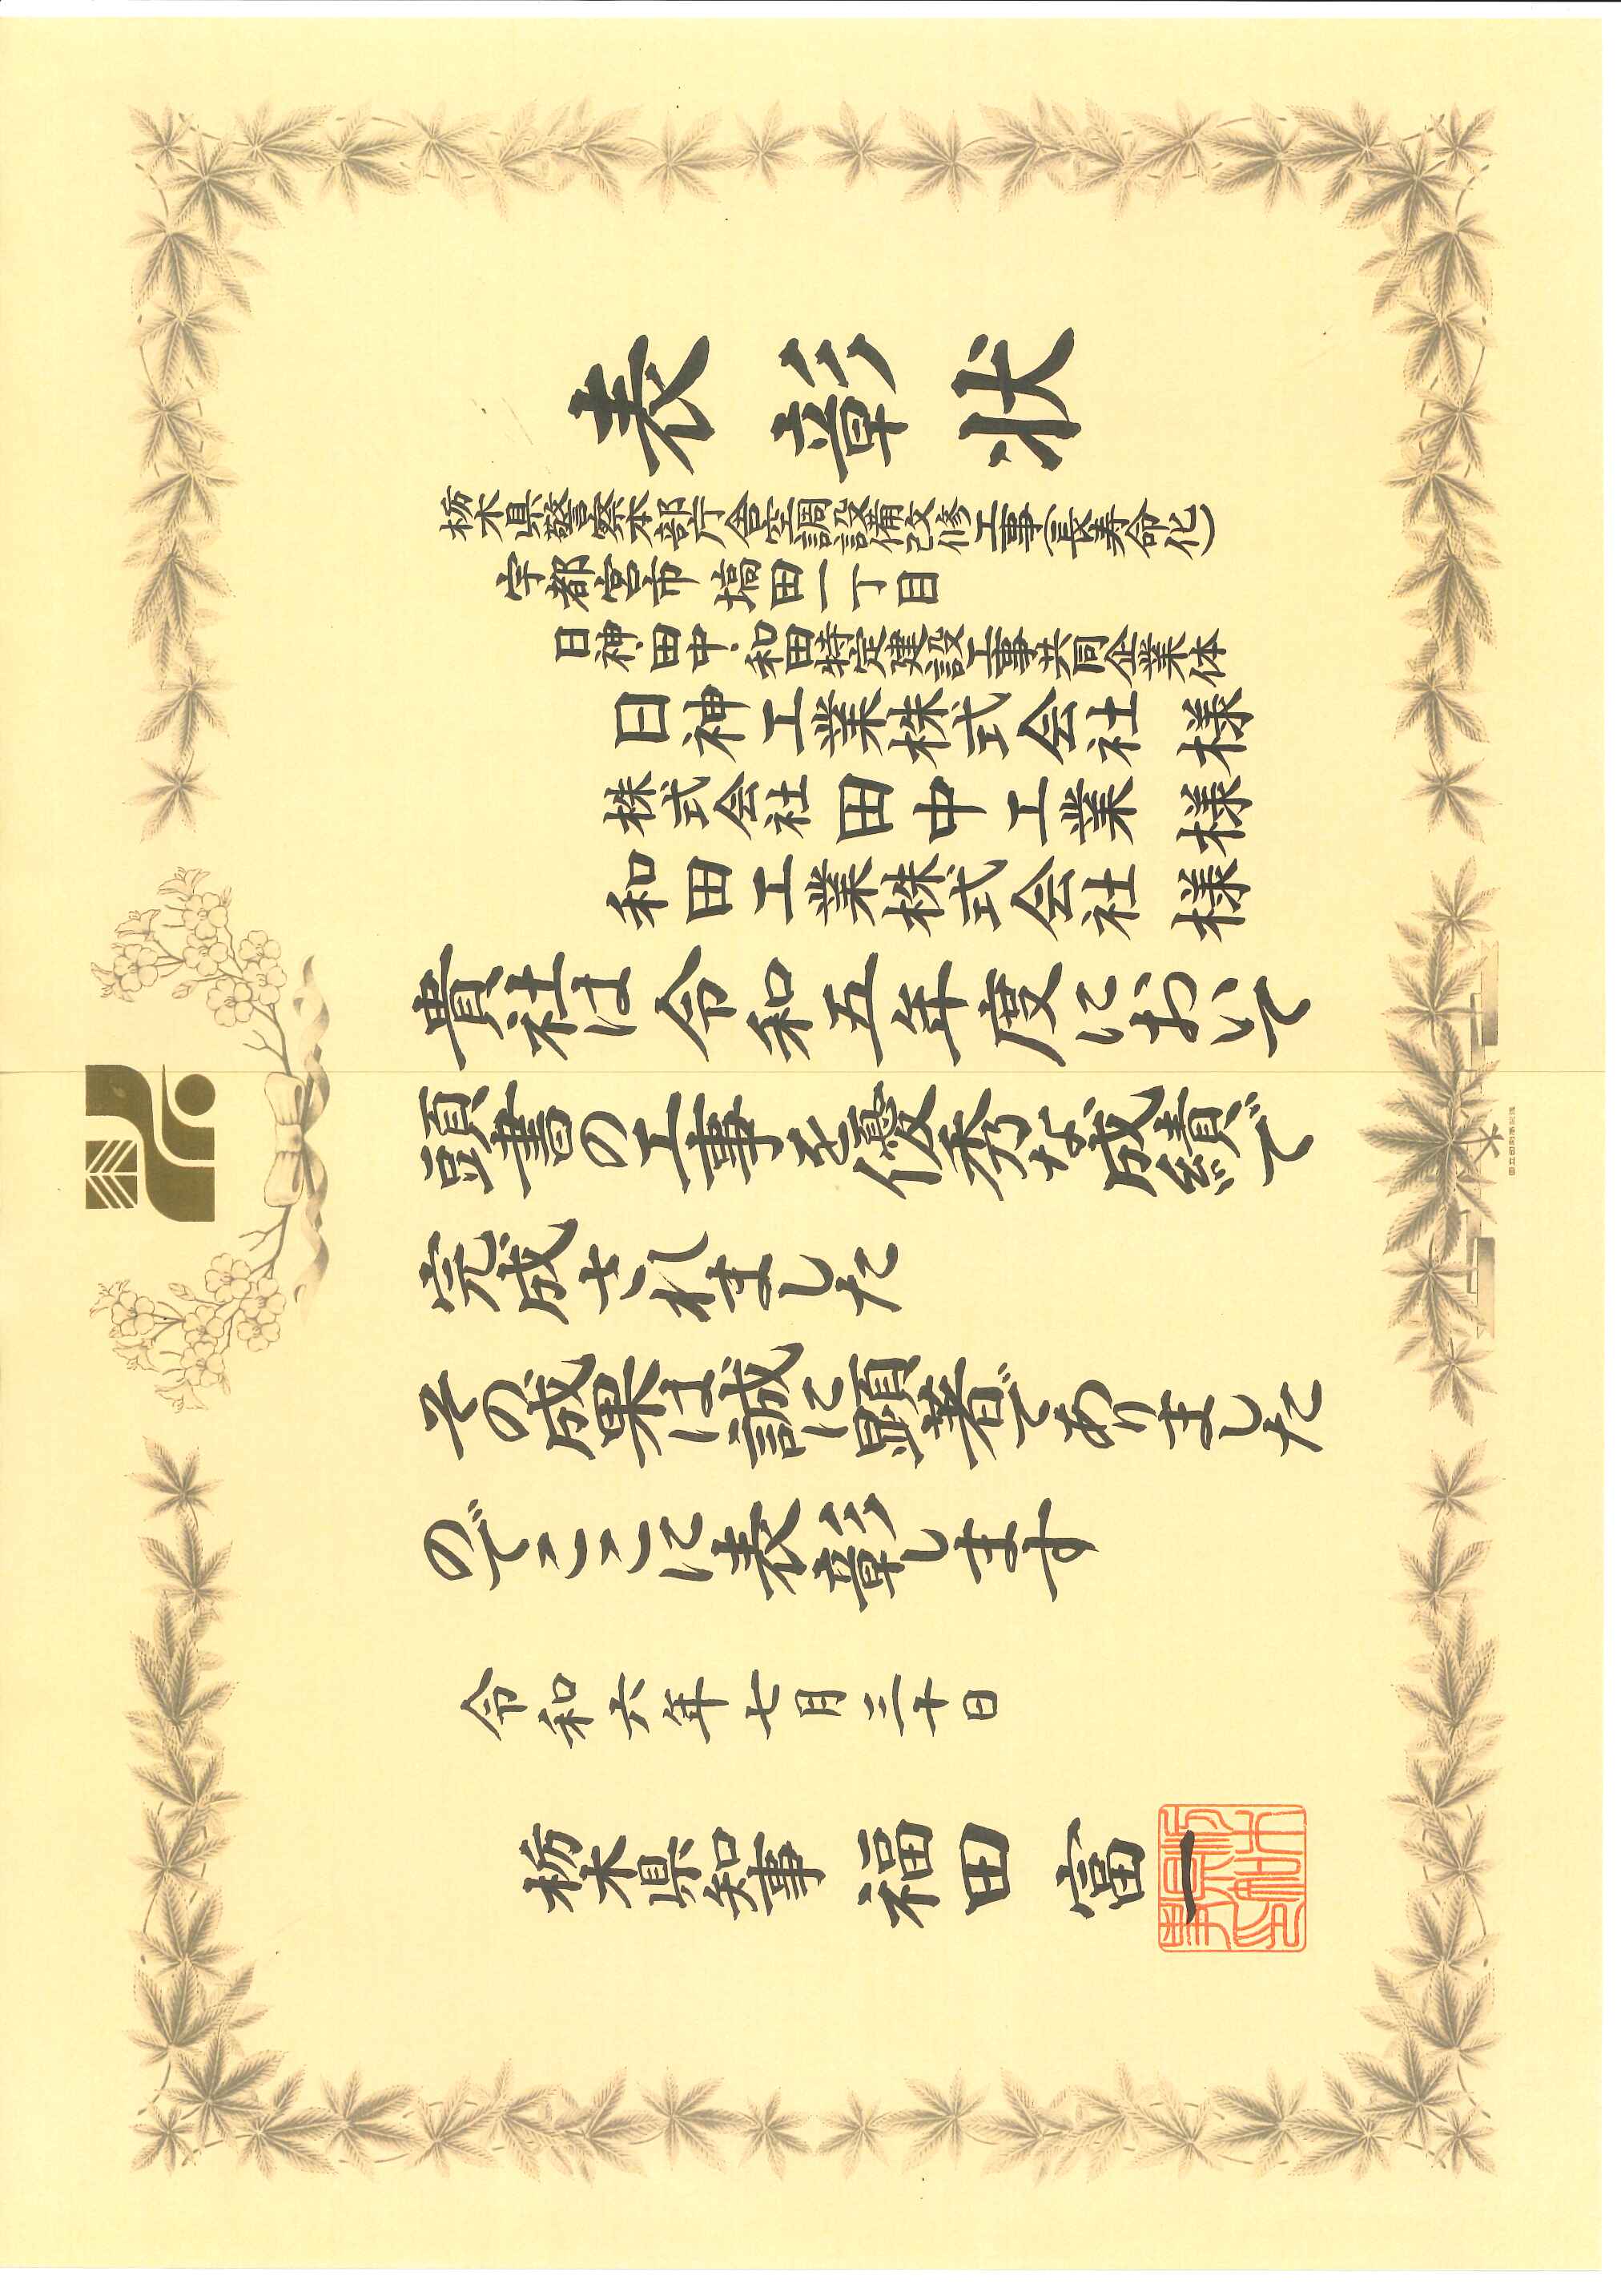 表彰状
栃木県警察本部庁舎空調設備改修工事(長寿命化)
宇都宮市塙田一丁目
日神・田中・和田特定建設工事共同企業体
日神工業株式会社 様
株式会社田中工業 様
和田工業株式会社 様
貴社は令和五年度において
頭書の工事を優秀な成績で
完成されました
その成果は誠に顕著でありました
のでここに表彰します
令和六年七月三十日
栃木県知事 福田富一